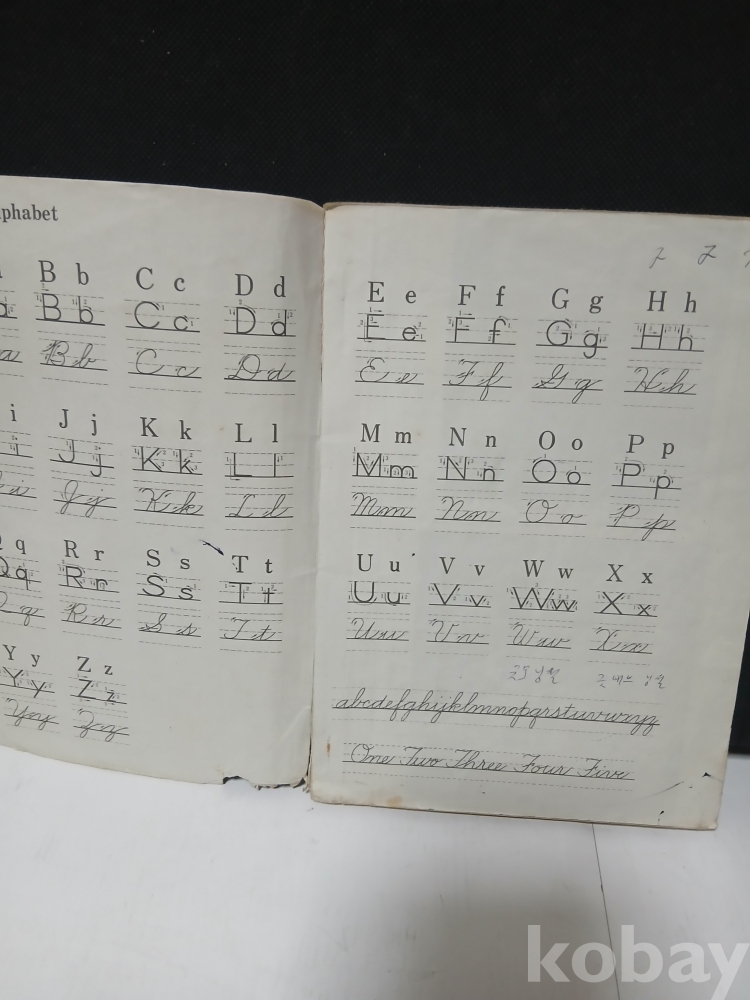 Alphabet
B b C c D d
B b C c D d
B b C c D d
i J j K k L l
i J j K k L l
i J j K k L l
q R r S s T t
Q q R r S s T t
Q q R r S s T t
Y y Z z
Y y Z z
Y y Z z
E e F f G g H h
E e F f G g H h
E e F f G g H h
M m N n O o P p
M m N n O o P p
M m N n O o P p
U u V v W w X x
U u V v W w X x
U u V v W w X x
abcdefghijklmnopqrstuvwxyz
One Two Three Four Five
kobay